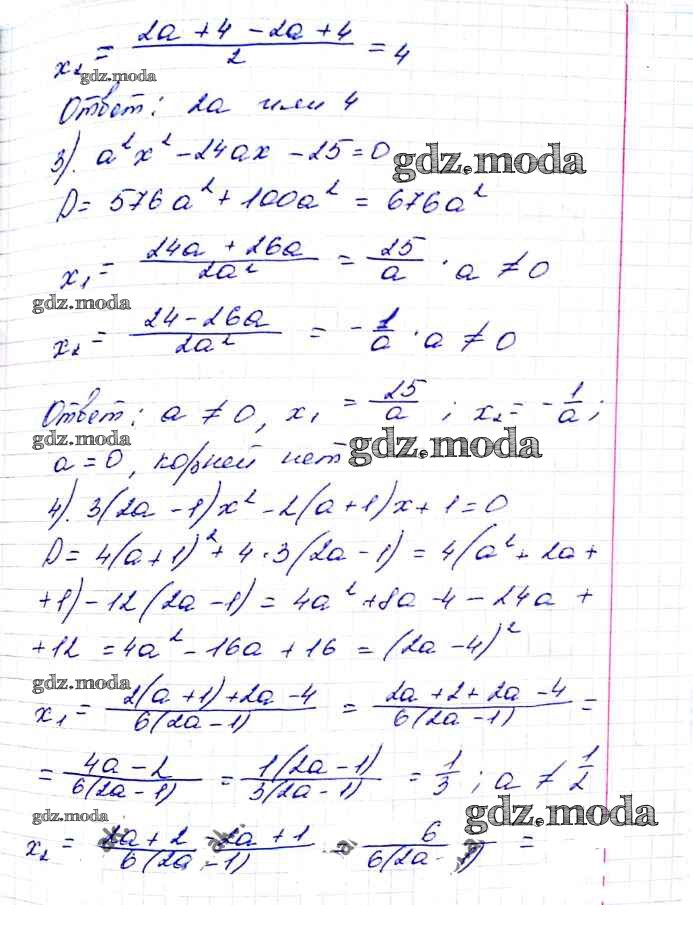 x₂ = (2a + 4 - 2a + 4)/2 = 4
gdz.moda
Ответ: 2a или 4
3). a²x² - 24ax - 25 = 0
gdz.moda
D = 576a² + 100a² = 676a²
x₁ = (24a + 26a)/2a² = 25/a · a ≠ 0
gdz.moda
x₂ = (24 - 26a)/2a² = -1/a · a ≠ 0
Ответ: a ≠ 0, x₁ = 25/a ; x₂ = -1/a ;
gdz.moda
gdz.moda
a = 0, корней нет
4). 3(2a - 1)x² - 2(a + 1)x + 1 = 0
D = 4(a + 1)² + 4 · 3(2a - 1) = 4(a² + 2a +
+ 1) - 12(2a - 1) = 4a² + 8a - 4 - 24a +
+ 12 = 4a² - 16a + 16 = (2a - 4)²
gdz.moda
x₁ = (2(a + 1) + 2a - 4)/6(2a - 1) = (2a + 2 + 2a - 4)/6(2a - 1) =
= (4a - 2)/6(2a - 1) = 1(2a - 1)/3(2a - 1) = 1/3 ; a ≠ 1/2
gdz.moda
gdz.moda
x₂ = (2a + 2 - 2a + 1)/6(2a - 1) = 6/6(2a - 1) =